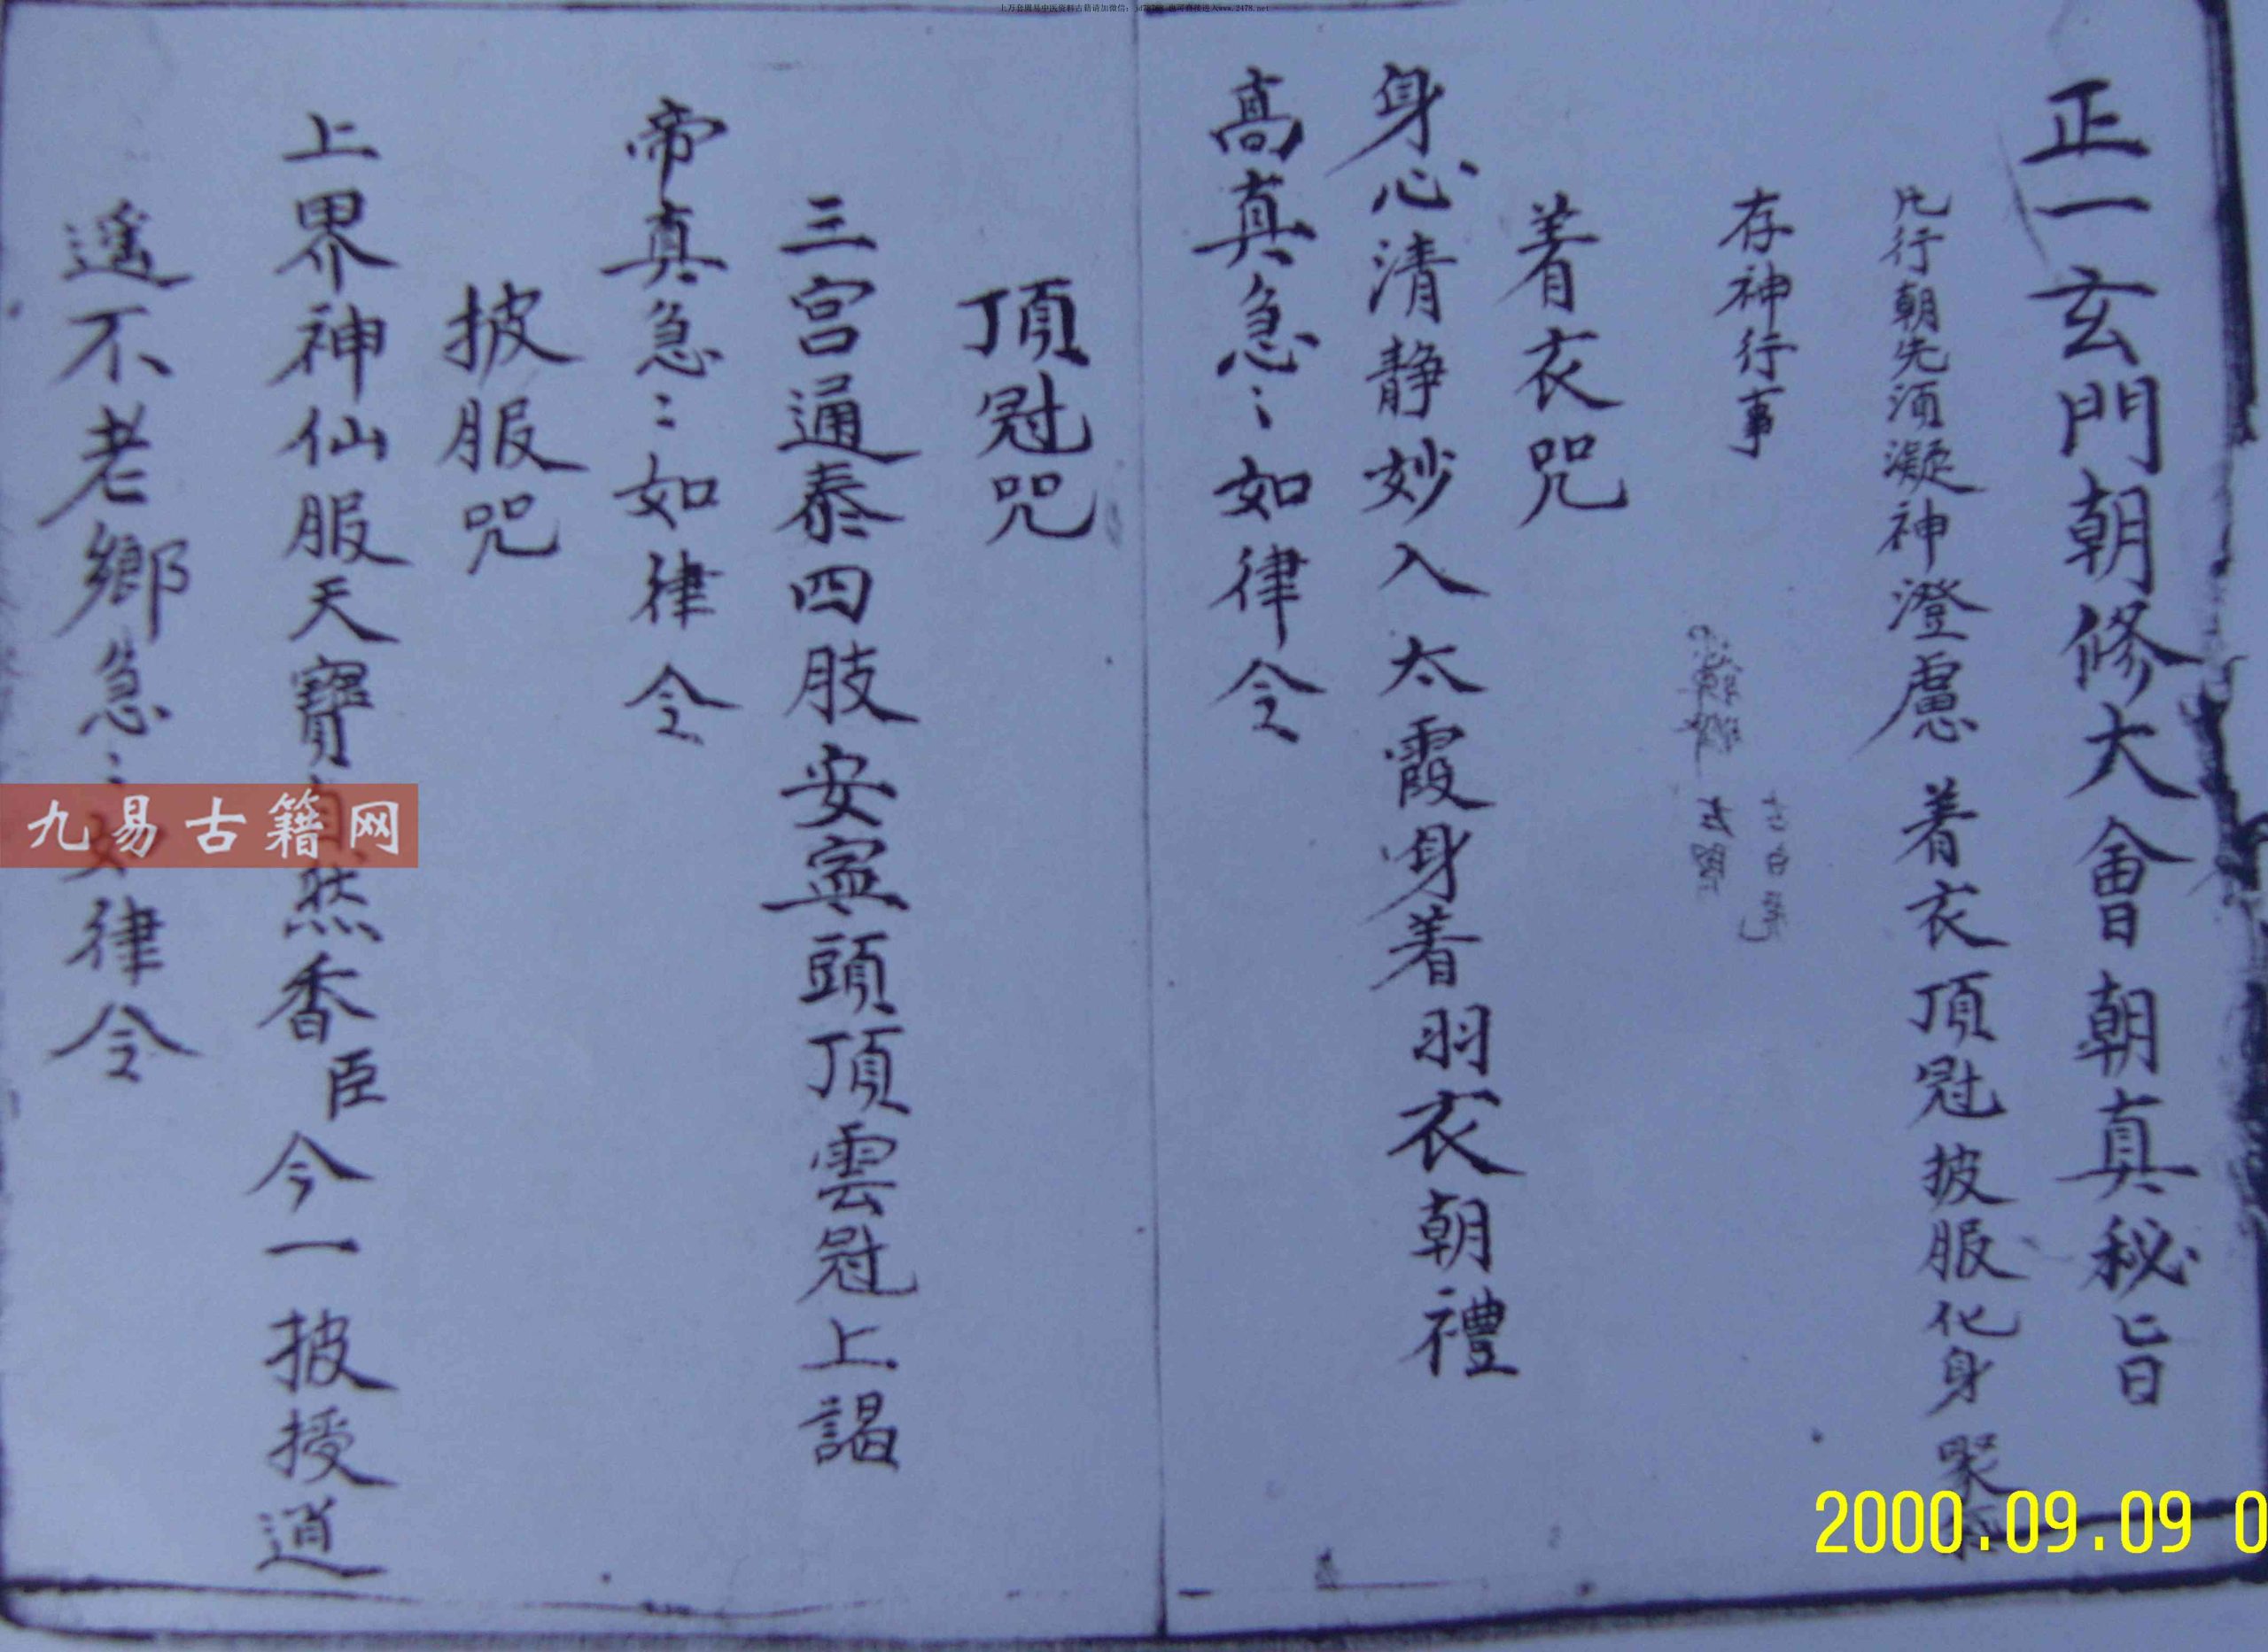 正一玄門朝修大會朝真秘旨
凡行朝先須凝神澄慮着衣頂冠披服化身聚
存神行事
着衣咒
身心清静妙入太霞身着羽衣朝禮
高真急〻如律令
頂冠咒
三宫通泰四肢安寧頭頂雲冠上謁
帝真急〻如律令
披服咒
上界神仙服天寶自然香臣今一披授逍
遥不老鄉急〻如律令
九易古籍网
2000.09.09 0